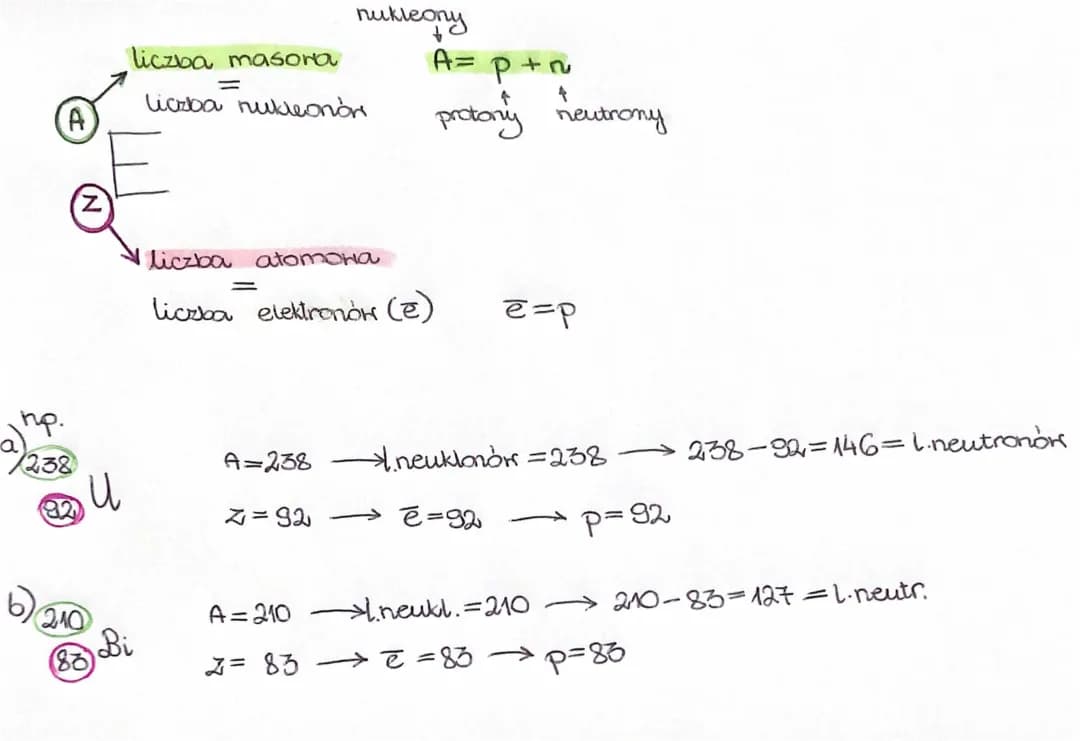 nukleony
liczba masowa
A = p + n
=
liczba nukleonów
protony neutrony
A
E
Z
liczba atomowa
=
liczba elektronów (e̅) e̅ = p
np.
a) 238 92 U
A = 238 → l. neuklonów = 238 → 238 - 92 = 146 = l. neutronów
Z = 92 → e̅ = 92 → p = 92
b) 210 83 Bi
A = 210 → l. neukl. = 210 → 210 - 83 = 127 = l. neutr.
Z = 83 → e̅ = 83 → p = 83